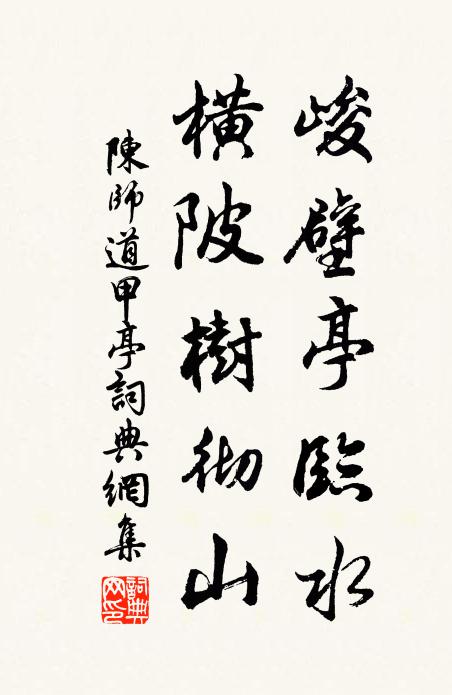 峻壁亭臨水
橫陂樹彻山
陳師道甲亭詞典網集
詞典
网印